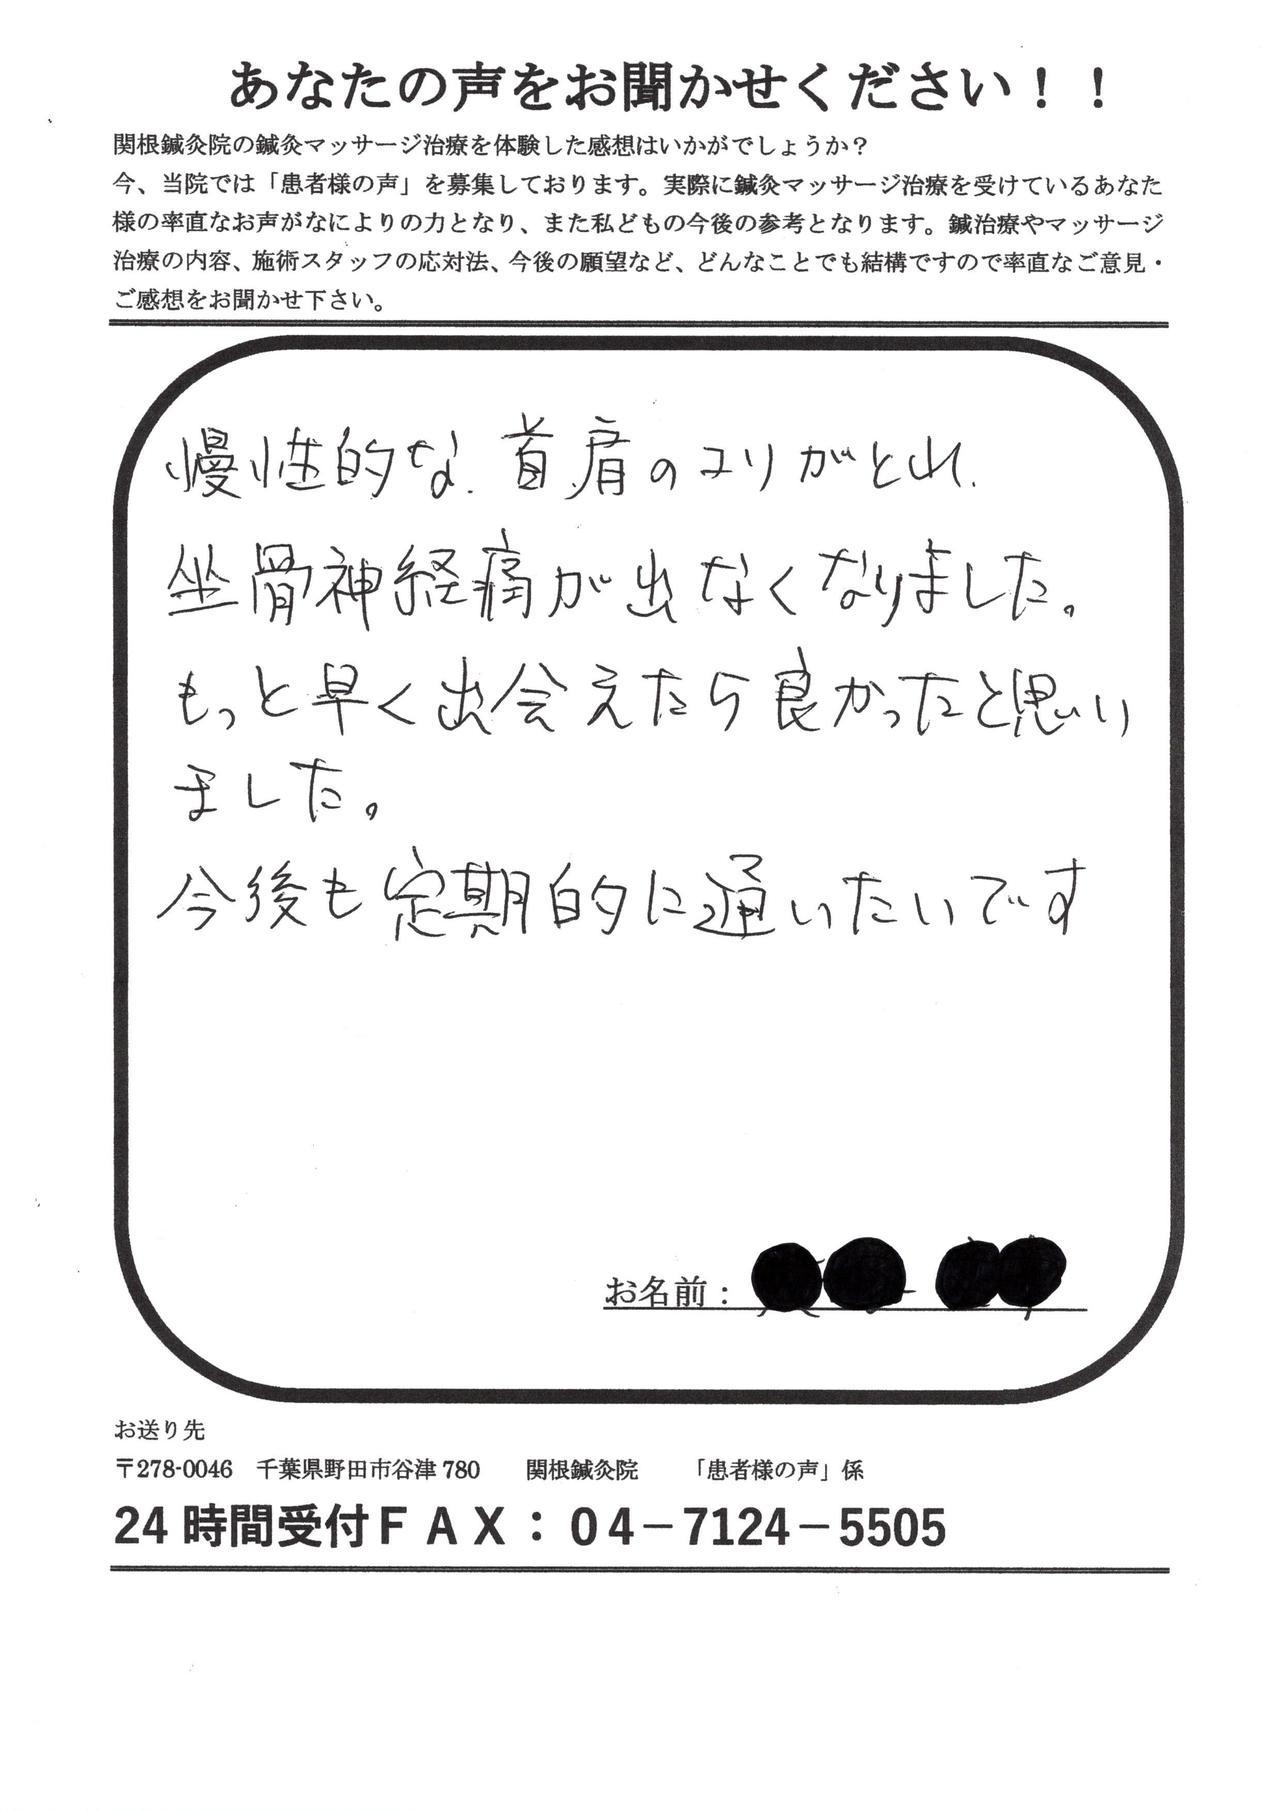 あなたの声をお聞かせください！！
関根鍼灸院の鍼灸マッサージ治療を体験した感想はいかがでしょうか？
今、当院では「患者様の声」を募集しております。実際に鍼灸マッサージ治療を受けているあなた
様の率直なお声がなによりの力となり、また私どもの今後の参考となります。鍼治療やマッサージ
治療の内容、施術スタッフの応対法、今後の願望など、どんなことでも結構ですので率直なご意見・
ご感想をお聞かせ下さい。
慢性的な、首、肩のコリがとれ、
坐骨神経痛が出なくなりました。
もっと早く出会えたら良かったと思い
ました。
今後も定期的に通いたいです
お名前：
お送り先
〒278-0046　千葉県野田市谷津 780　　関根鍼灸院　　「患者様の声」係
24 時間受付ＦＡＸ：０４－7124－5505